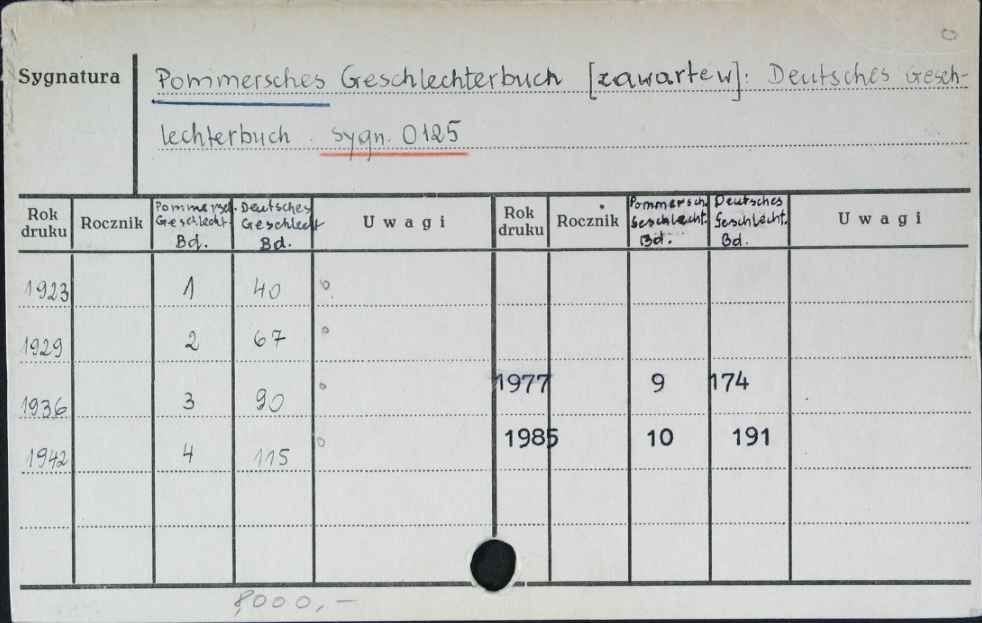 Sygnatura
Pommersches Geschlechterbuch [zawarte w]: Deutsches Gesch-
lechterbuch. Sygn. 0125
Rok druku Rocznik Pommersch. Geschlecht. Bd. Deutsches Geschlecht Bd. Uwagi Rok druku Rocznik Pommersch. Geschlecht. Bd. Deutsches Geschlecht. Bd. Uwagi
1923 1 40
1929 2 67
1936 3 90 1977 9 174
1942 4 115 1985 10 191
8000,-